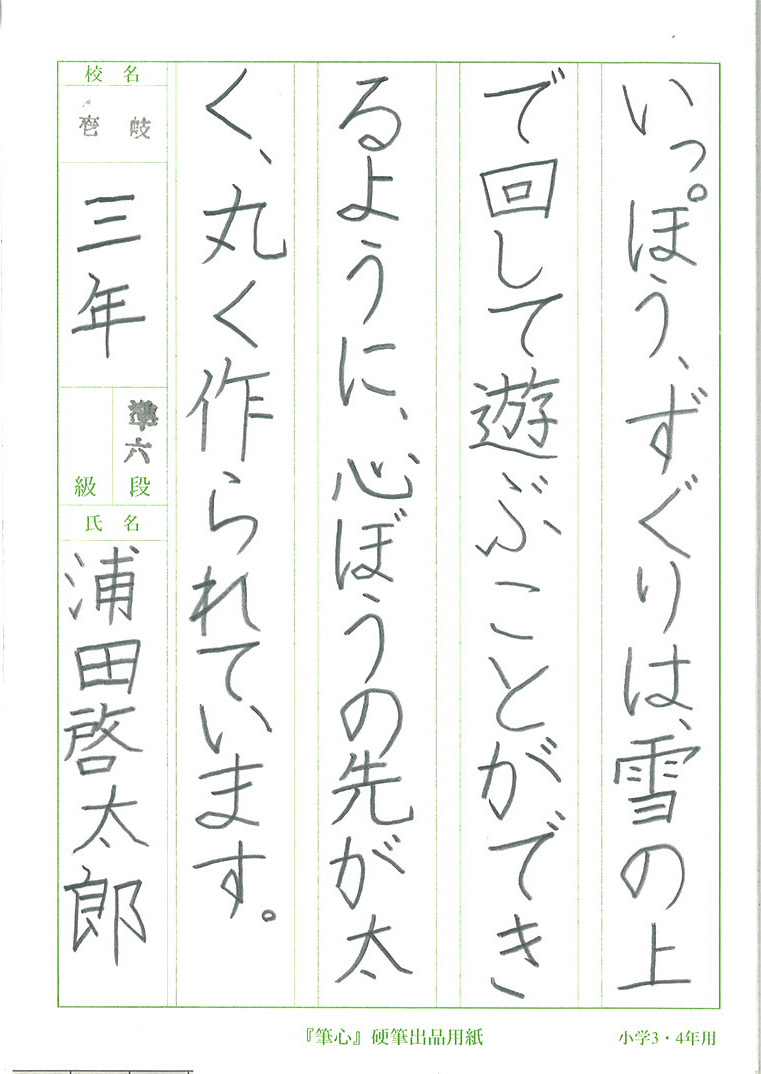 いっぽう、ずぐりは、雪の上
で回して遊ぶことができ
るように、心ぼうの先が太
く、丸く作られています。
校名
壱岐
三年
準六
段
級
氏名
浦田啓太郎
『筆心』硬筆出品用紙
小学3・4年用